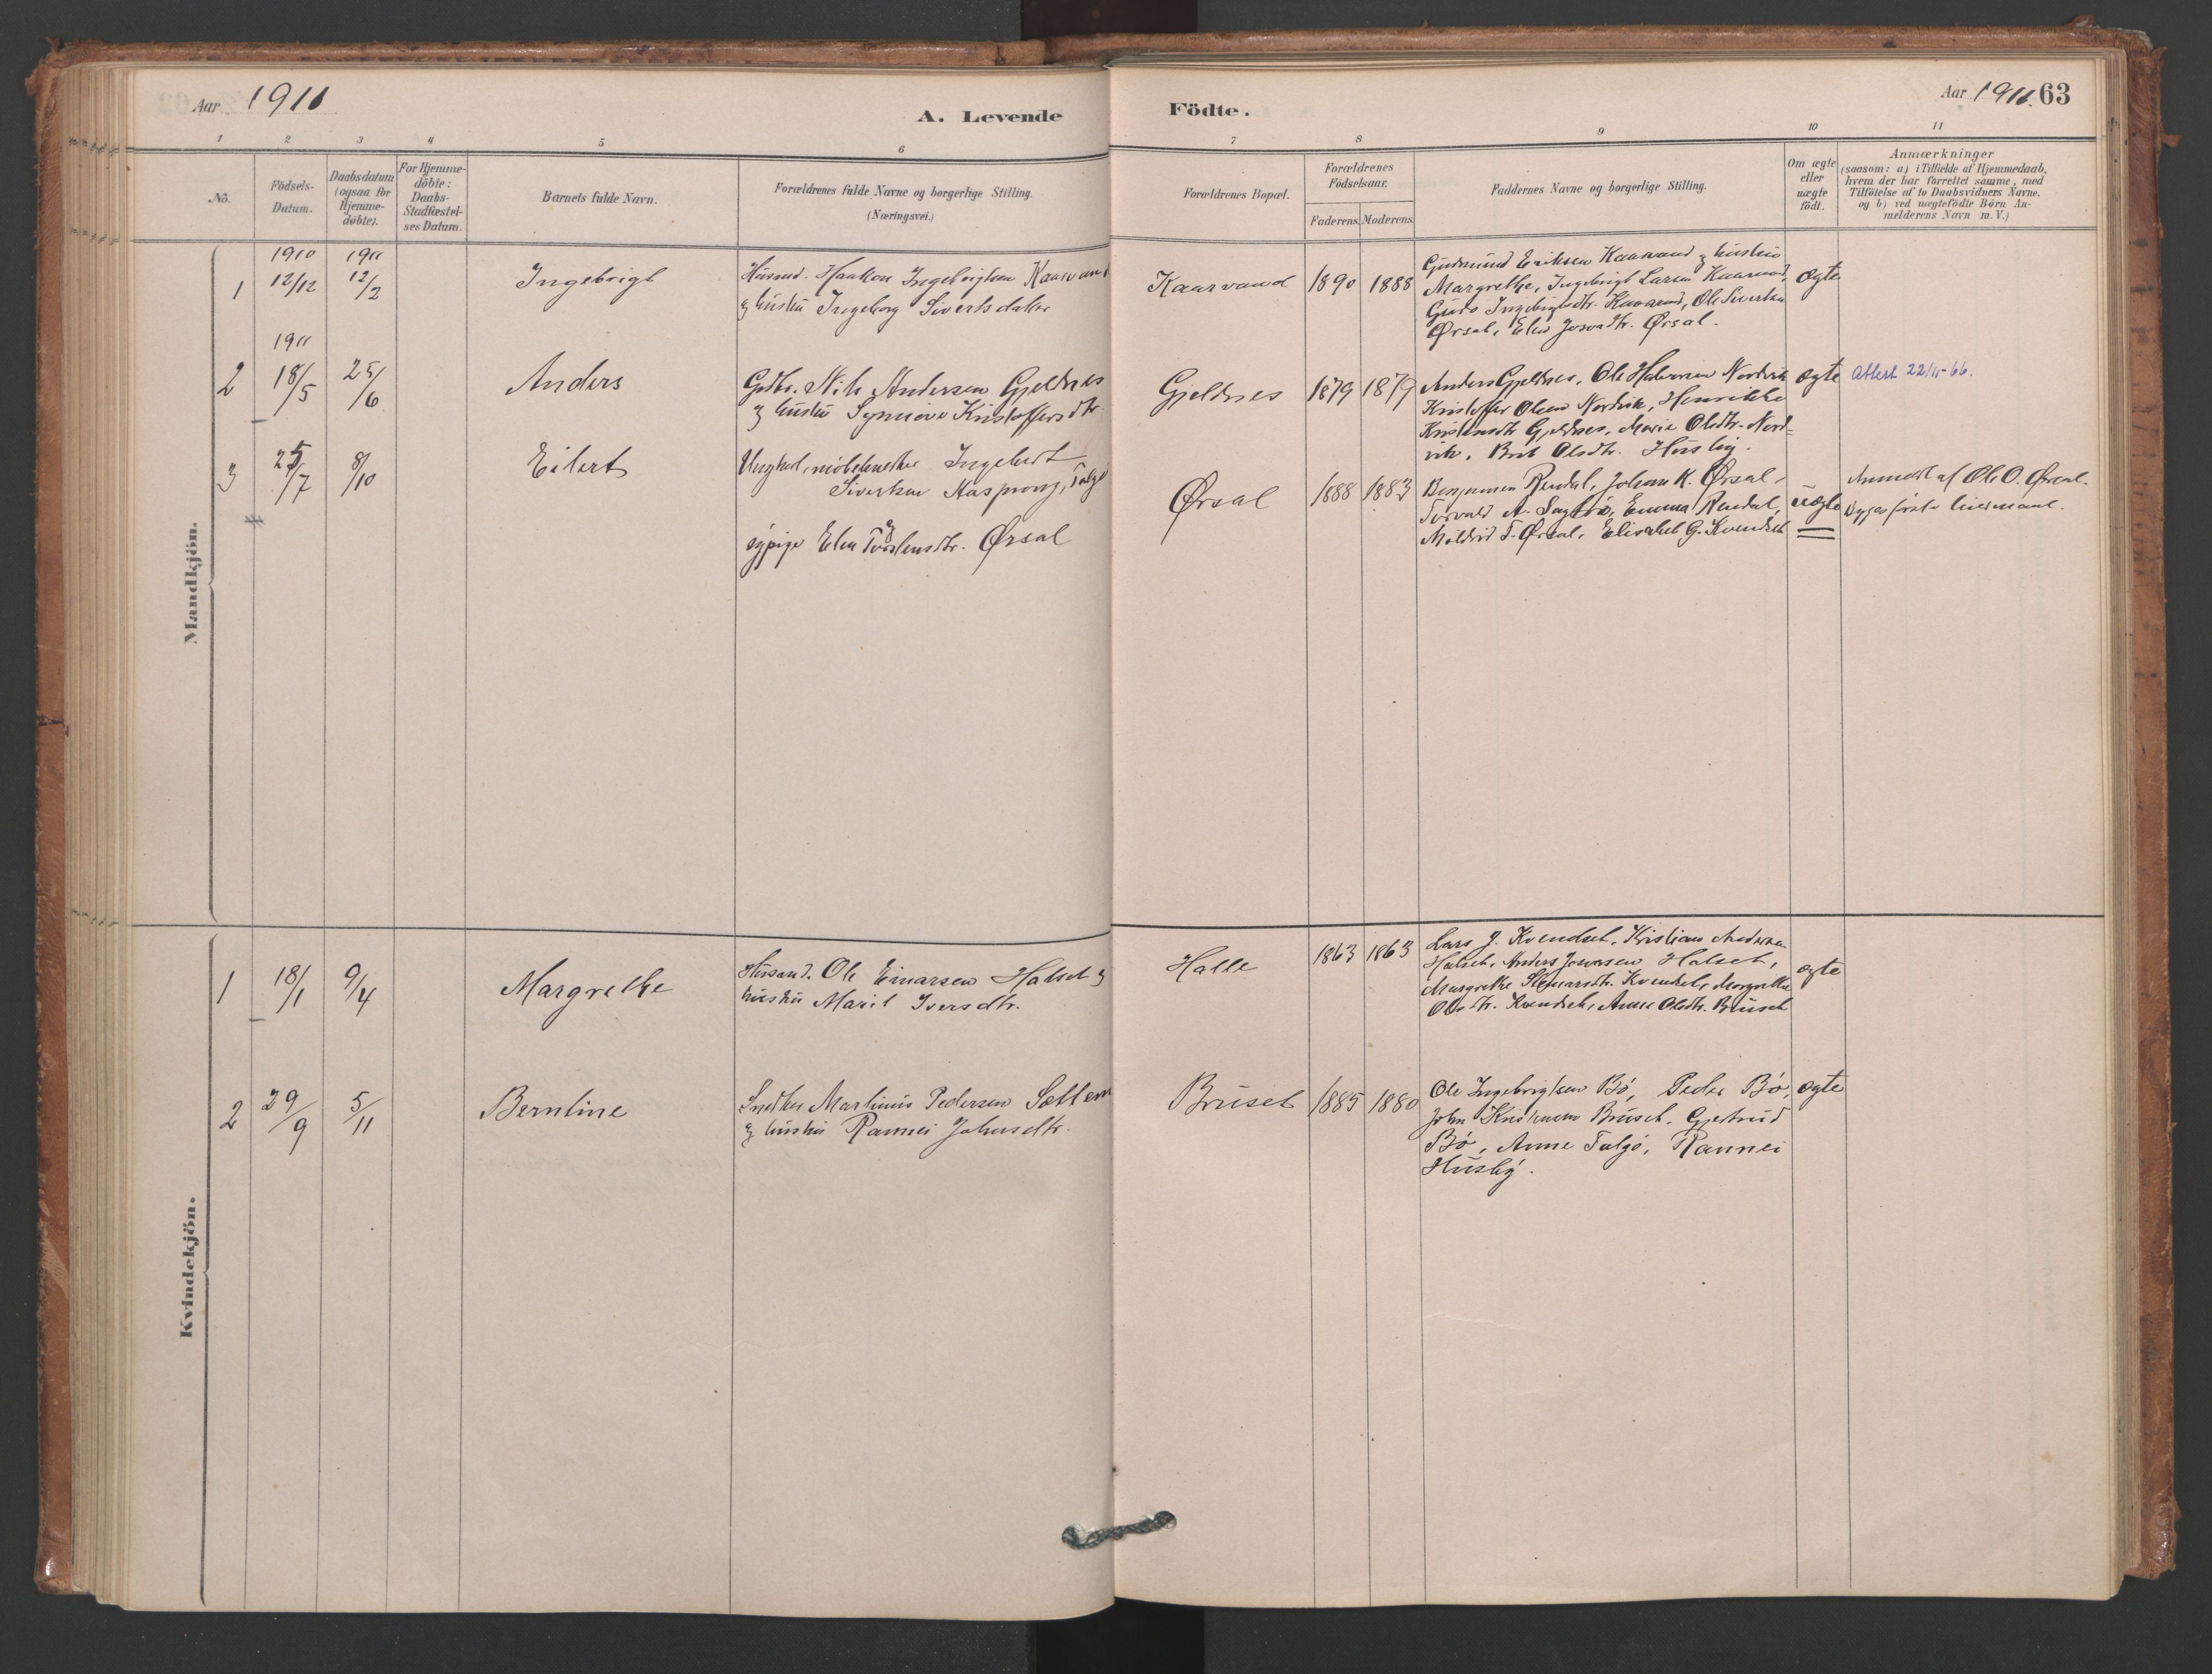 Aar 1911
A. Levende Födte.
Aar 1911. 63
1 2 3 4 5 6 7 8 9 10 11
No.
Födsels-Datum.
Daabsdatum (ogsaa for Hjemme-döbte).
For Hjemme-döbte: Daabs-Stadfæstel-ses Datum.
Barnets fulde Navn.
Forældrenes fulde Navne og borgerlige Stilling.
(Næringsvei.)
Forældrenes Bopæl.
Forældrenes Födselsaar.
Faderens. Moderens.
Faddernes Navne og borgerlige Stilling.
Om ægte eller uægte födt.
Anmærkninger
(saasom: a) i Tilfælde af Hjemmedaab,
hvem der har forrettet samme, med
Tilföielse af to Daabsvidners Navne.
og b) ved uægtefödte Börn An-
melderens Navn m. V.)
Mandkjön.
1910 1911
1 12/12 12/2 Ingebrigt
Husmd. Haakon Ingebrigtsen Kaarvand
og hustru Ingeborg Sivertsdatter
Kaarvand 1890 1888
Gudmund Eriksen Kaarvand og hustru
Margrethe, Ingebrigt Larsen Kaarvand,
Guro Ingebrigtsdtr. Kaarvand, Ole Sivertsen
Ørsal, Elen Josvadtr. Ørsal.
ægte
1911
2 18/5 25/6 Anders
Gdbr. Nils Andersen Gjeldnes
og hustru Synnøve Kristoffersdtr.
Gjeldnes 1879 1879
Anders Gjeldnes, Ole Halvorsen Nordvik
Kristoffer Olsen Nordvik, Henrikke
Kristensdtr Gjeldnes, Marie Olsdtr. Nord-
vik, Brit Olsdtr. Husby.
ægte
Attest 22/11-66.
3 25/7 8/10 Eilert
Ungkarl, møbelsnedker Ingebert
Sivertsen Aasprong, Talgø
og
sypige Elen Torstensdtr. Ørsal
Ørsal 1888 1883
Benjamin Rendal, Johan K. Ørsal,
Torvald A. Saglø, Emma Rendal,
Mildrid T. Ørsal, Elisabet G. Kvendset
uægte
Anmeldt af Ole O. Ørsal.
Begges første leiermaal.
Kvindekjön.
1 18/1 9/4 Margrethe
Husmd. Ole Einarsen Halset og
hustru Marit Iversdtr.
Halle 1863 1863
Lars J. Kvendset, Kristian Andersen
Halset, Anders Jonassen Halset,
Margrethe Kvendset, Margrethe
Olsdtr. Kvendset, Anne Olsdtr. Bruset
ægte
2 29/9 5/11 Berntine
Snedker Martinus Pedersen Sollem
og hustru Rannei Johnsdtr.
Bruset 1885 1880
Ole Ingebrigtsen Bø, Peder Bø,
John Kristensen Bruset, Gjertrud
Bø, Anne Talgø, Rannei
Husby.
ægte